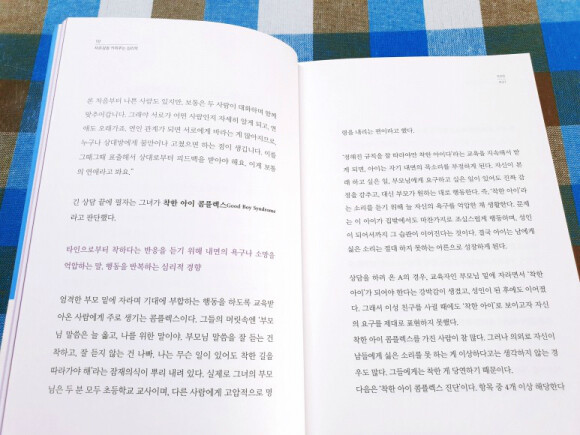 12
론 처음부터 나쁜 사람도 있지만, 보통은 두 사람이 대화하며 함께
맞추어갑니다. 그래야 서로가 어떤 사람인지 자세히 알게 되고, 연
애도 오래가죠. 연인 관계가 되면 서로에게 바라는 게 많아지므로,
누구나 상대방에게 불만이나 고쳤으면 하는 점이 생깁니다. 이를
그때그때 표출해서 상대로부터 피드백을 받아야 해요. 이게 보통
의 연애라고 봐요.”
긴 상담 끝에 필자는 그녀가 착한 아이 콤플렉스Good Boy Syndrome
라고 판단했다.
타인으로부터 착하다는 반응을 듣기 위해 내면의 욕구나 소망을
억압하는 말, 행동을 반복하는 심리적 경향
엄격한 부모 밑에 자라며 기대에 부합하는 행동을 하도록 교육받
아온 사람에게 주로 생기는 콤플렉스이다. 그들의 머릿속엔 ‘부모
님 말씀은 늘 옳고, 나를 위한 말이야. 부모님 말씀을 잘 듣는 건
착하고, 잘 듣지 않는 건 나빠. 나는 무슨 일이 있어도 착한 길을
따라가야 해’라는 잠재의식이 뿌리 내려 있다. 실제로 그녀의 부모
님은 두 분 모두 초등학교 교사이며, 다른 사람에게 고압적으로 명
령을 내리는 편이라고 했다.
‘정해진 규칙을 잘 따라야만 착한 아이다’라는 교육을 지속해서 받
게 되면, 아이는 자기 내면의 목소리를 부정하게 된다. 자신이 본
래 하고 싶은 일, 부모님에게 요구하고 싶은 일이 있어도 진짜 감
정을 감추고, 대신 부모가 원하는 대로 행동한다. 즉, ‘착한 아이’라
는 소리를 듣기 위해 늘 자신의 욕구를 억압한 채 생활한다. 문제
는 이 아이가 집밖에서도 마찬가지로 조심스럽게 행동하며, 성인
이 되어서까지 그 습관이 이어진다는 것이다. 결국 아이는 남에게
싫은 소리는 절대 하지 못하는 어른으로 성장하게 된다.
상담을 하러 온 A의 경우, 교육자인 부모님 밑에 자라면서 ‘착한
아이’가 되어야 한다는 강박감이 생겼고, 성인이 된 후에도 이어졌
다. 그래서 이성 친구를 사귈 때에도 ‘착한 아이’로 보이고자 자신
의 욕구를 제대로 표현하지 못했다.
착한 아이 콤플렉스를 가진 사람이 참 많다. 그러나 의외로 자신이
남들에게 싫은 소리를 못 하는 게 이상하다고는 생각하지 않는 경
우도 많다. 그들에게는 착한 게 당연하기 때문이다.
다음은 ‘착한 아이 콤플렉스 진단’이다. 항목 중 4개 이상 해당한다